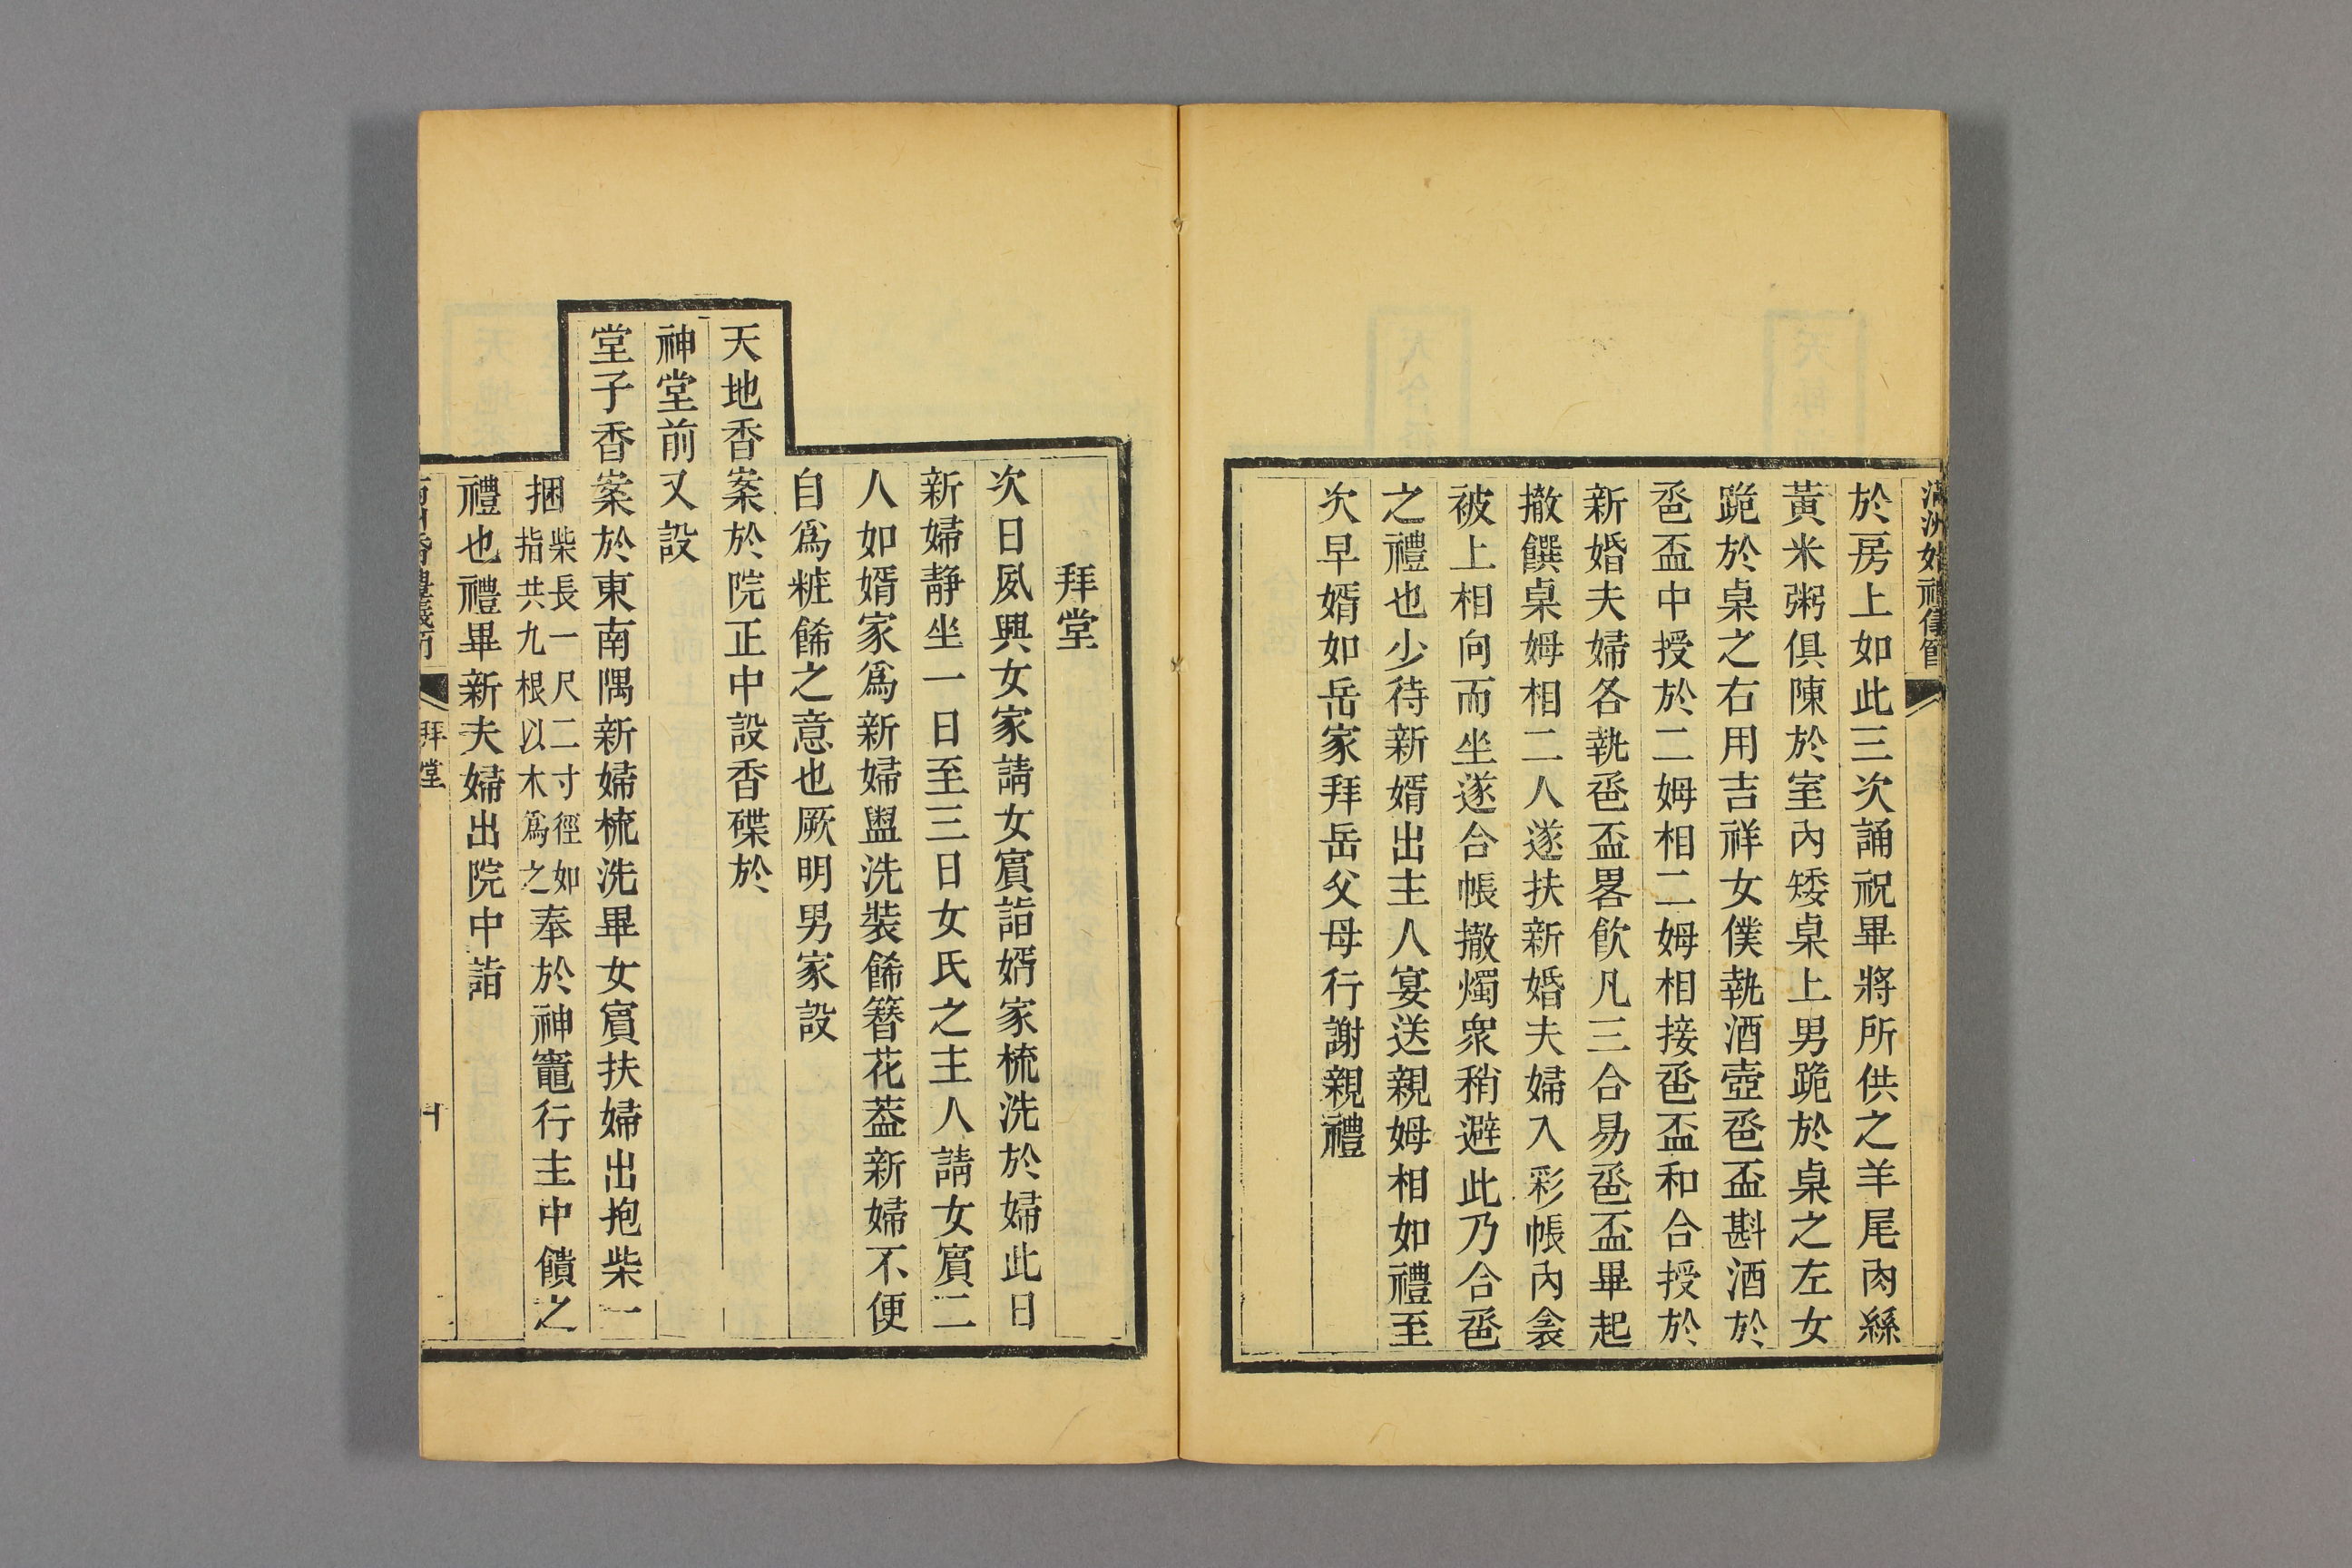 滿洲婚禮儀節
於房上如此三次誦祝畢將所供之羊尾肉絲
黃米粥俱陳於室內矮桌上男跪於桌之左女
跪於桌之右用吉祥女僕執酒壺卺盃斟酒於
卺盃中授於二姆相二姆相接卺盃和合授於
新婚夫婦各執卺盃畧飲凡三合易卺盃畢起
撤饌桌姆相二人遂扶新婚夫婦入彩帳內衾
被上相向而坐遂合帳撤燭衆稍避此乃合卺
之禮也少待新婿出主人宴送親姆相如禮至
次早婿如岳家拜岳父母行謝親禮
拜堂
次日夙興女家請女賓詣婿家梳洗於婦此日
新婦靜坐一日至三日女氏之主人請女賓二
人如婿家爲新婦盥洗裝餙簪花葢新婦不便
自爲粧餙之意也厥明男家設
天地香案於院正中設香碟於
神堂前又設
堂子香案於東南隅新婦梳洗畢女賓扶婦出抱柴一
捆柴長一尺二寸徑如指共九根以木爲之奉於神竈行主中饋之
禮也禮畢新夫婦出院中詣
拜堂